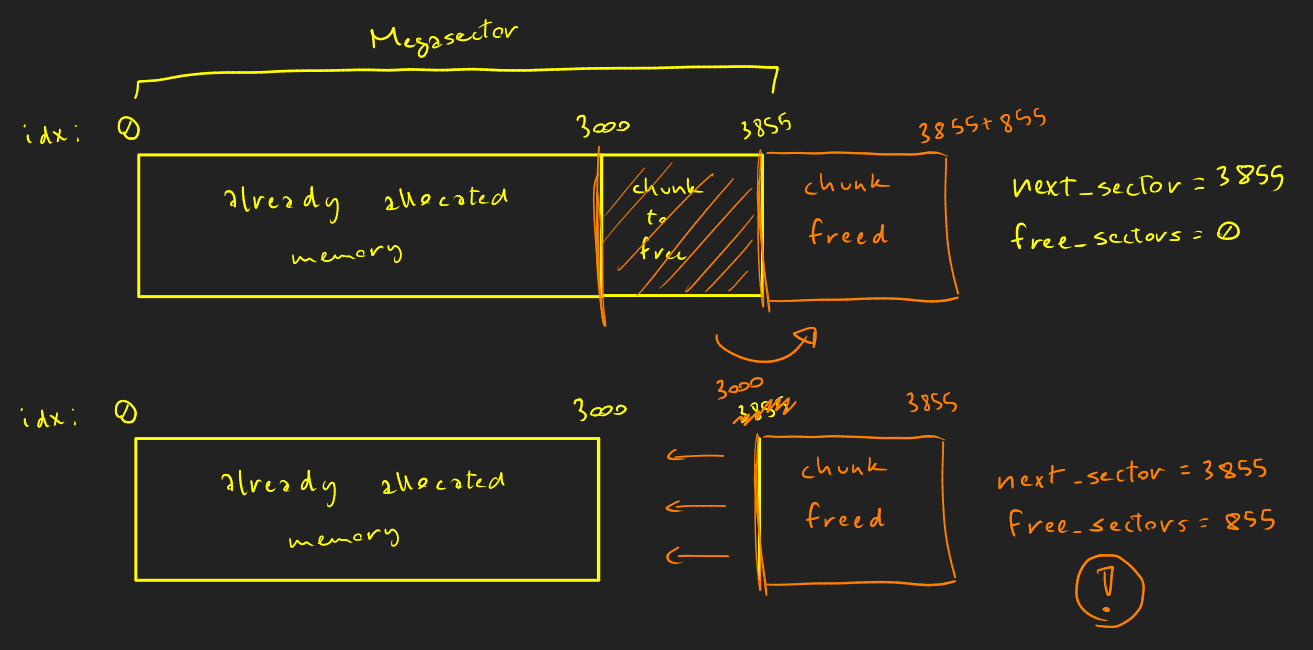 Megasector
idx: 0 3000 3855 3855+855
already allocated
memory
chunk
to
free
chunk
freed
next_sector = 3855
free_sectors = 0
3000
idx: 0 3000 3855 3855
already allocated
memory
chunk
freed
next_sector = 3855
free_sectors = 855
!